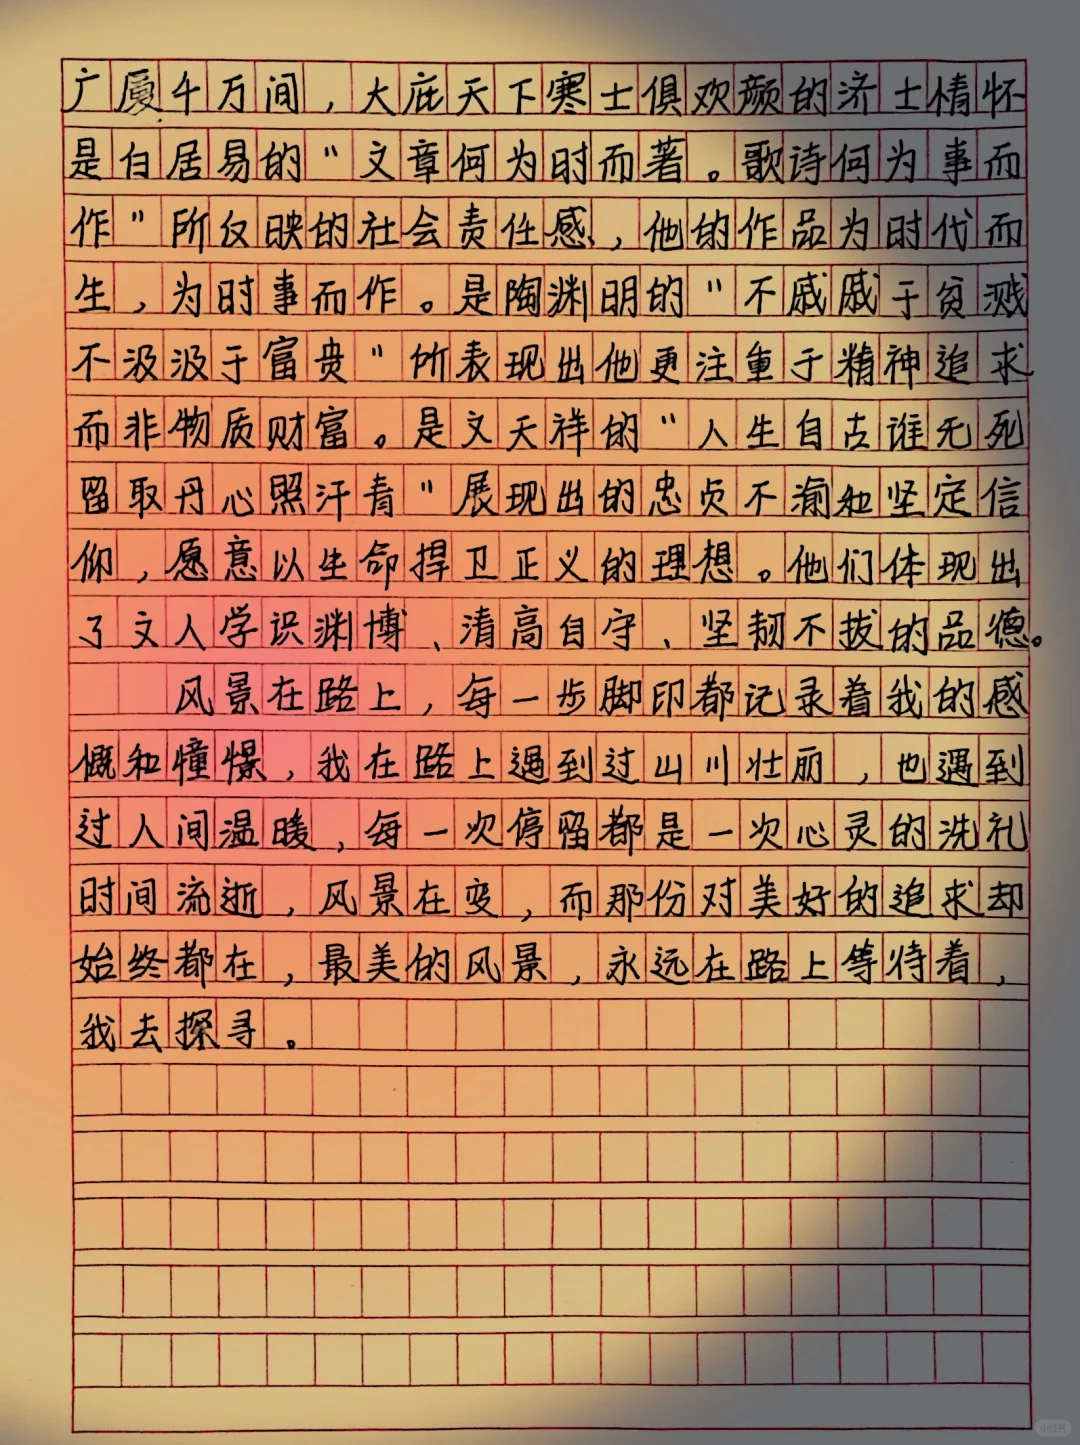 广厦千万间，大庇天下寒士俱欢颜的济士情怀
是白居易的"文章何为时而著。歌诗何为事而
作"所反映的社会责任感，他的作品为时代而
生，为时事而作。是陶渊明的"不戚戚于贫溅
不汲汲于富贵"所表现出他更注重于精神追求
而非物质财富。是文天祥的"人生自古谁无死
留取丹心照汗青"展现出的忠贞不渝和坚定信
仰，愿意以生命捍卫正义的理想。他们体现出
了文人学识渊博、清高自守、坚韧不拔的品德。
风景在路上，每一步脚印都记录着我的感
慨和憧憬，我在路上遇到过山川壮丽，也遇到
过人间温暖，每一次停留都是一次心灵的洗礼
时间流逝，风景在变，而那份对美好的追求却
始终都在，最美的风景，永远在路上等待着，
我去探寻。
小红书